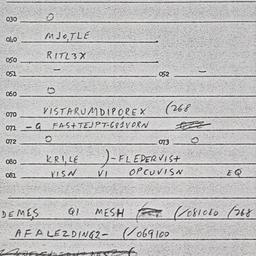 030 O
040 MJO,TLE
050 RITL3X
051 – 052 –
060 O
070 VISTARUMDIPOREX (268
071 - G FAST+TEJPT-G81VORN
072 O 073 O
080 KRI,LE )-FLEDERVIS+
081 VISN VI OPCUVISN EQ
DEMES GI MESH (/081080 /268
AFALEZDING2- (/069100